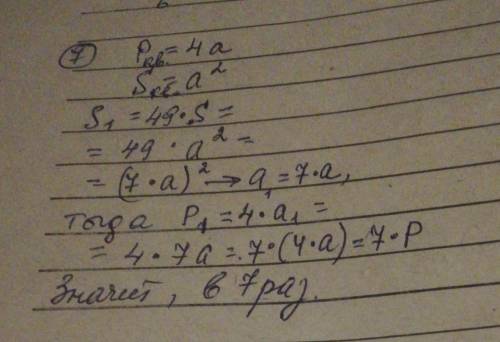 ⑦ Pкв. = 4a
Sкв. = a²
S₁ = 49·S =
= 49 · a² =
= (7·a)² → a₁ = 7·a,
тогда P₁ = 4·a₁ =
= 4 · 7a = 7·(4·a) = 7·P
Значит, в 7 раз.